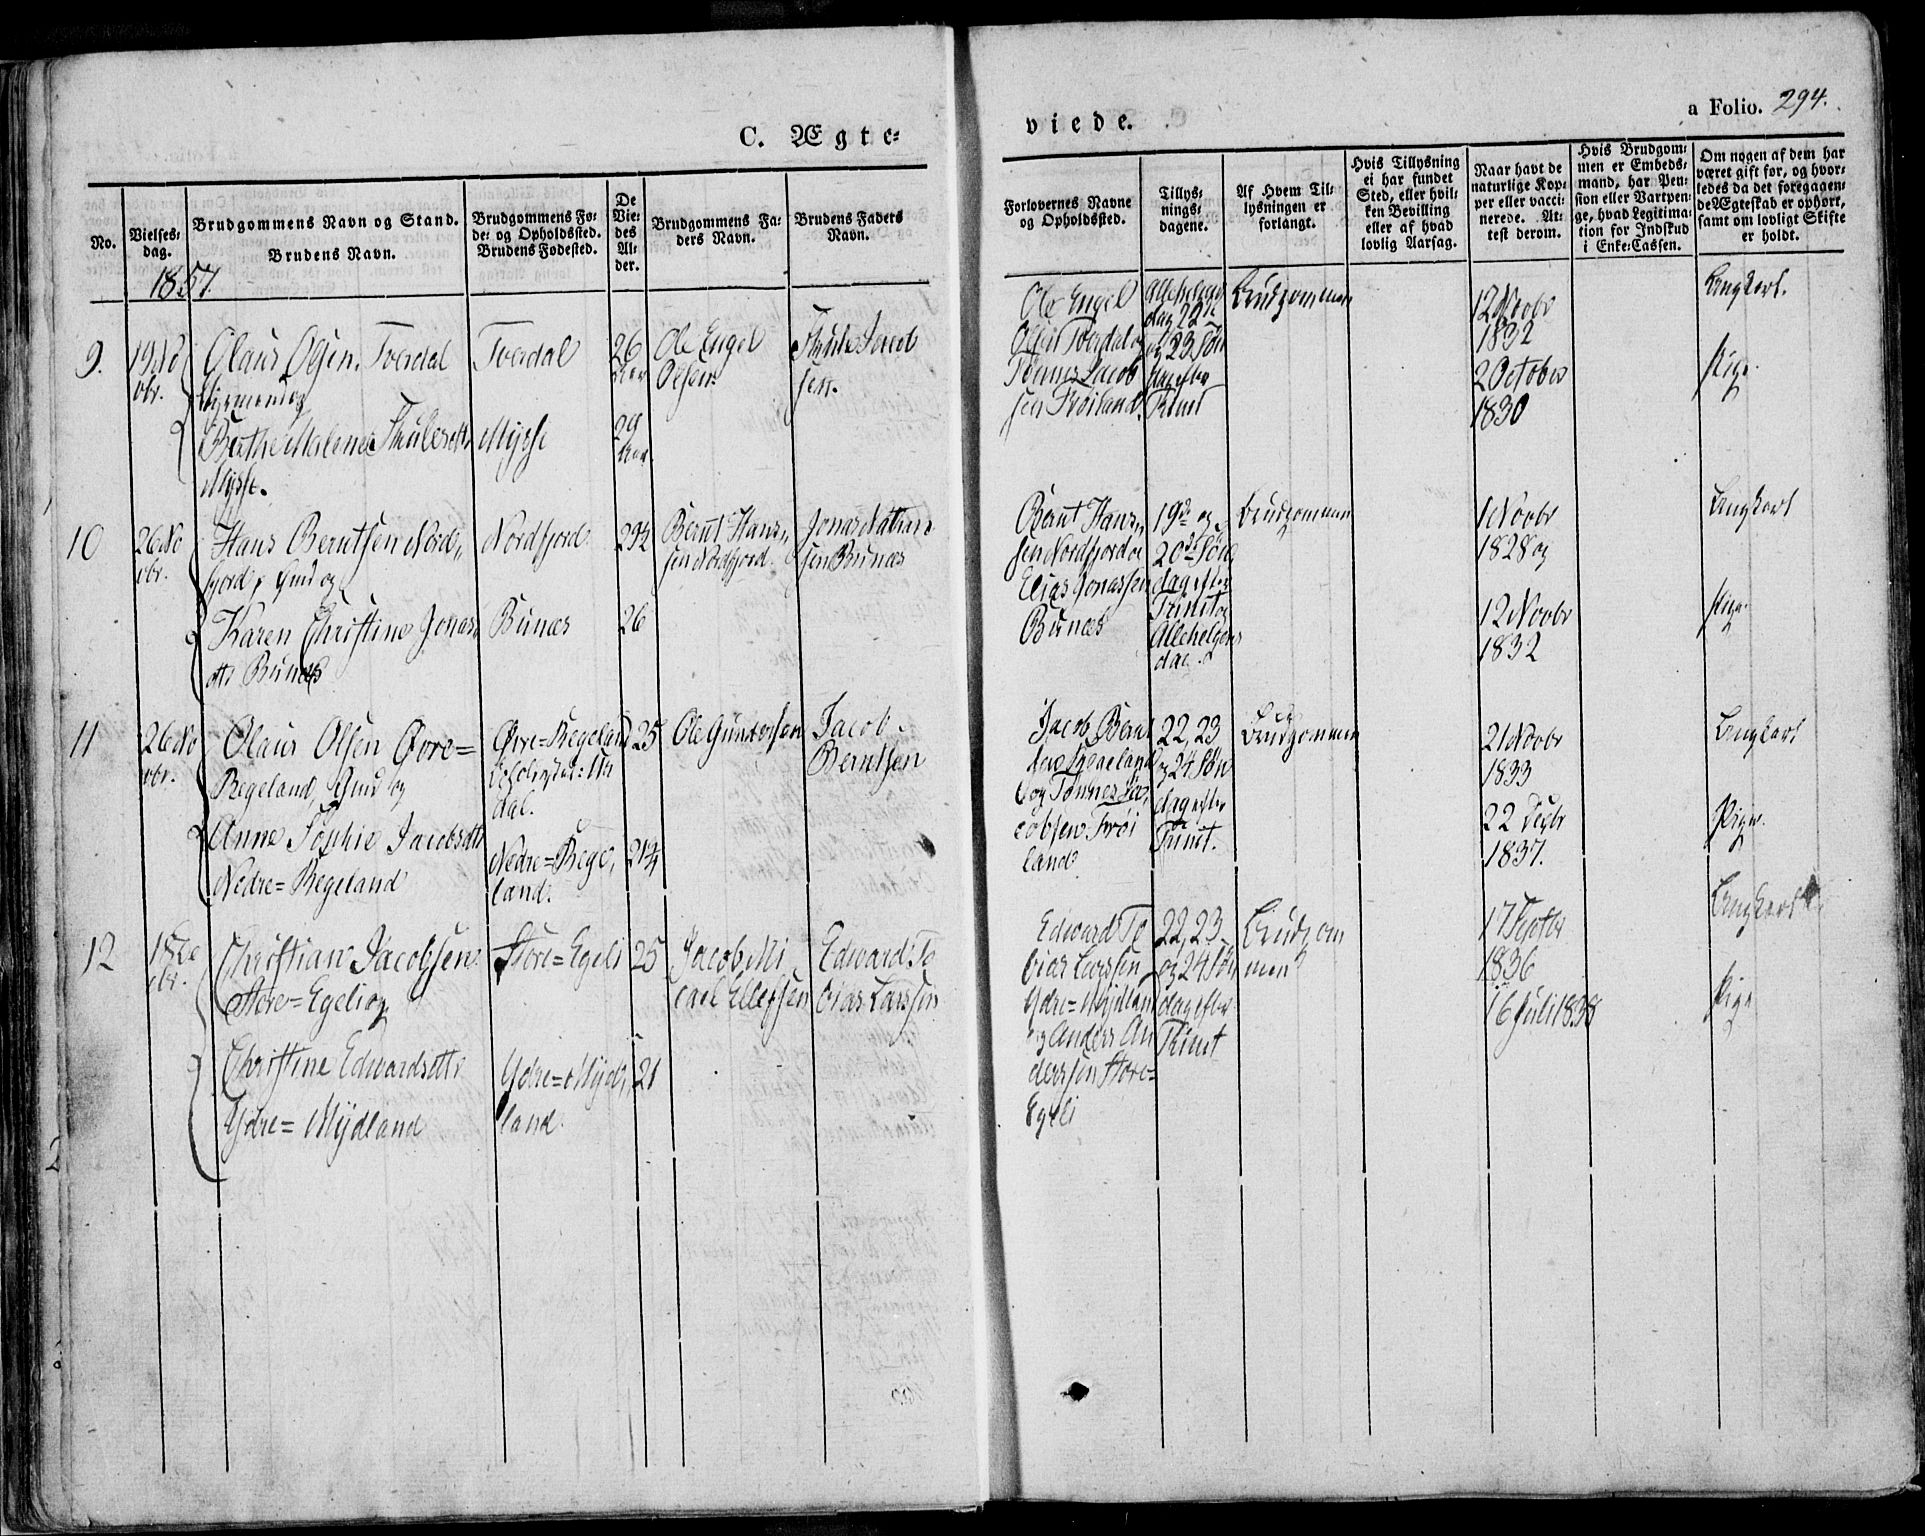 C. Ægte=
viede.
a Folio. 294.
No.
Vielses=
dag.
Brudgommens Navn og Stand.
Brudens Navn.
Brudgommens Fø=
de= og Opholdssted.
Brudens Fødested.
De
Vie=
des
Al=
der.
Brudgommens Fa=
ders Navn.
Brudens Faders
Navn.
Forlovernes Navne
og Opholdssted.
Tillys=
nings=
dagene.
Af Hvem Til=
lysningen er
forlangt.
Hvis Tillysning
ei har fundet
Sted, eller hvil=
ken Bevilling
eller af hvad
lovlig Aarsag.
Naar havt de
naturlige Kop=
per eller vacci=
nerede. At=
test derom.
Hvis Brudgom=
men er Embeds=
mand, har Pen=
sion eller Vartpen=
ge, hvad Legitima=
tion for Indskud
i Enke=Cassen.
Om nogen af dem har
været gift før, og hvor=
ledes da det foregaaen=
de Ægteskab er ophørt,
samt om lovligt Skifte
er holdt.
1857.
9.
19 No
vbr.
Olaus Olsen Tverdal
og
Berthe Malene Thulesdtr
Mysse.
Tverdal
Mysse
26
Aar
29
Aar
Ole Engel
Olsen.
Thule Joned
sen.
Ole Engel
Olsen Tverdal og
Tønnes Jacob
sen Frøiland.
Allehelgen
dag 22de
og 23 Søn
dag efter
Trinit
Brudgommen
12 Novbr
1832
2 October
1830
Ungkarl.
Pige.
10
26 No
vbr.
Hans Berntsen Nord„
fjord, og
Karen Christine Jonas
dtr Bunæs
Nordfjord
Bunæs
29½
26
Bernt Hans„
sen Nordfjord.
Jonas Nathan
sen Bunæs
Bernt Hans„
sen Nordfjord og
Elias Jonassen
Bunæs
19de og
20de Søn
dag efter
Trinit og
Allehelgens
dag.
Brudgommen
1 Novbr
1828 og
12 Novbr
1832
Ungkarl
Pige
11
26 No
vbr.
Olaus Olsen Øvre=
Regeland, og
Anne Sophie Jacobsdtr
Nedre=Regeland
Øvre=Regeland
dal.
Nedre=Rege„
land.
25
21¾
Ole Gundersen
Jacob
Berntsen
Jacob Bernt
sen Regeland
og Tønnes Ja„
cobsen Frøi
land
22, 23
og 24 Søn
dag efter
Trinit.
Brudgommen
21 Novbr
1833
22 Decbr
1837.
Ungkarl
Pige.
12
18 De
cbr.
Christian Jacobsen
Store=Egeli og
Christine Edwardsdtr
Ydre=Mydland
Store=Egeli
Ydre=Myd„
land.
25
21
Jacob Mi
cael Ellefsen
Edward To
bias Larssen
Edward To
bias Larssen
Ydre=Mydland
og Anders An
derssen Store=
Egeli
22, 23
og 24 Søn
dag efter
Trinit
Brudgom
men
17 Septbr
1836
16 Juli 1838
Ungkarl
Pige